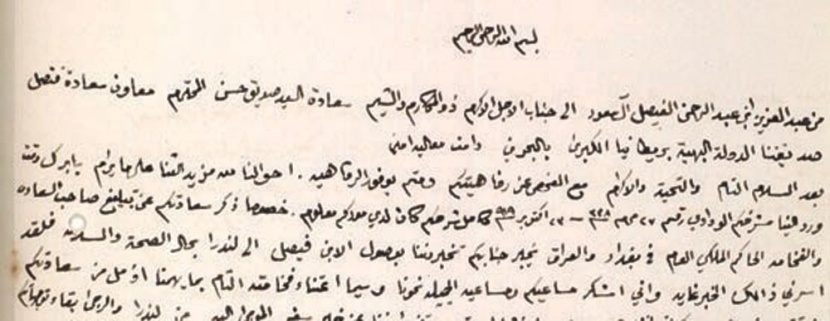 بسم الله الرحمن الرحيم
من عبد العزيز ابن عبد الرحمن الفيصل آل سعود الى جناب الاجل الاكرم ذو المكارم والشيم سعادة السيد صديق حسن المحترم معاون سعادة قنصل
صديقتنا الدولة البهية بريطانيا الكبرى بالبحرين دامت معاليه امين
بعد السلام التام والتحية والاكرام مع الفحص عن رفاهيتكم ومنتم بوفور الرفاهيه . احوالنا من مزيد الثنا على ما يرام يابرك وقت
ورد الينا مشرفكم الودادي رقم ٢٧ محرم ٣٣٨ - ٢٣ اكتوبر ٩١٩ كامل شرحكم كان لدى معلوم . خصوصا ذكر سعادتكم عن تبليغ صاحب السعاده
والفخامه الحاكم الملكي العام في بغداد والعراق بخبر جنابكم تخبرننا بوصول الابن فيصل الى لندرا بحال الصحة والسلامه فلقد
اسرني ذالك الخبر غايه واني اشكر مساعيكم ومساعيه الجميله نحونا وسيما اعتناء فخامته التام بما يهمنا اؤمل من سعادتكم
من لندرا والرجا بقاء توجهاتكم